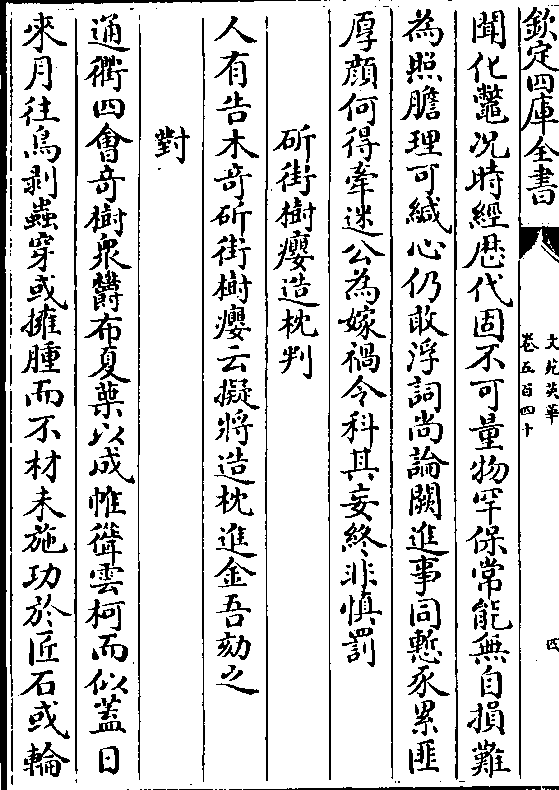 欽定四庫全書
文苑英華
卷五百四十
四
聞化鼈况時經歴代固不可量物罕保常能無自損難
為照膽理可緘心仍敢浮詞尚論闕進事同慙豕累匪
厚顔何得牽迷公為嫁禍令科其妄終非慎罰
斫街樹癭造枕判
人有告木竒斫街樹癭云擬將造枕進金吾劾之
對
通衢四會竒樹衆欝布夏葉以成帷聳雲柯而似蓋日
來月往鳥剥蟲穿或擁腫而不材未施功於匠石或輪